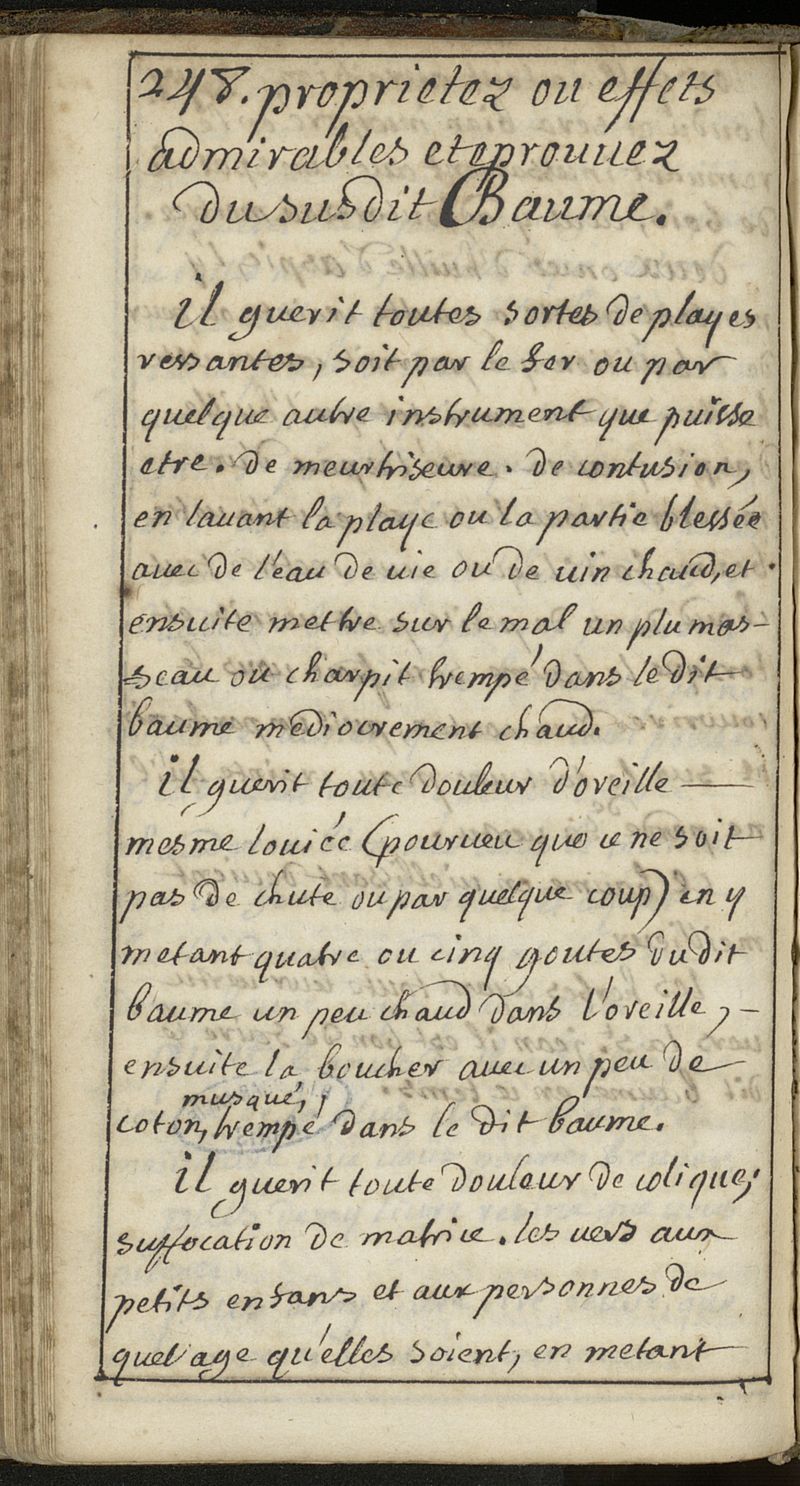 248. proprietez ou effets
admirables et eprouuez
du susdit Baume.
il guerit toutes sortes de playes
ressantes, soit par le fer ou par
quelque autre instrument que puisse
etre. de meurtriseure. de contusion,
en lauant la playe ou la partie blessée
auec de l'eau de uie ou de uin chaud, et
ensuite mettre sur le mal un plumas-
seau ou charpit trempé dans le dit
baume mediocrement chaud.
il guerit toute douleur d'oreille
mesme l'ouiée (pourueu que ce ne soit
pas de chute ou par quelque coup) en y
metant quatre ou cinq goutes du dit
baume un peu chaud dans l'oreille,
ensuite la boucher auec un peu de
musqué,
coton, trempé dans le dit baume.
il guerit toute douleur de colique,
suffocation de matrice. les uers aux
petits enfans et aux personnes de
quel age qu'elles soient, en metant